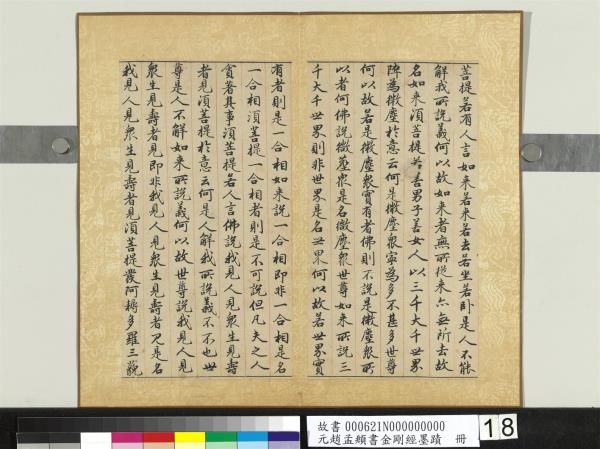 菩提若有人言如來若來若去若坐若卧是人不能
解我所說義何以故如來者無所從來亦無所去故
名如來須菩提若善男子善女人以三千大千世界
碎為微塵於意云何是微塵眾寧為多不甚多世尊
何以故若是微塵眾實有者佛則不說是微塵眾所
以者何佛說微塵眾是名微塵眾世尊如來所說三
千大千世界則非世界是名世界何以故若世界實
有者則是一合相如來說一合相即非一合相是名
一合相須菩提一合相者則是不可說但凡夫之人
貪著其事須菩提若人言佛說我見人見眾生見壽
者見須菩提於意云何是人解我所說義不不也世
尊是人不解如來所說義何以故世尊說我見人見
眾生見壽者見即非我見人見眾生見壽者見是名
我見人見眾生見壽者見須菩提發阿耨多羅三藐
故書 000621N000000000
元趙孟頫書金剛經墨蹟 冊
18